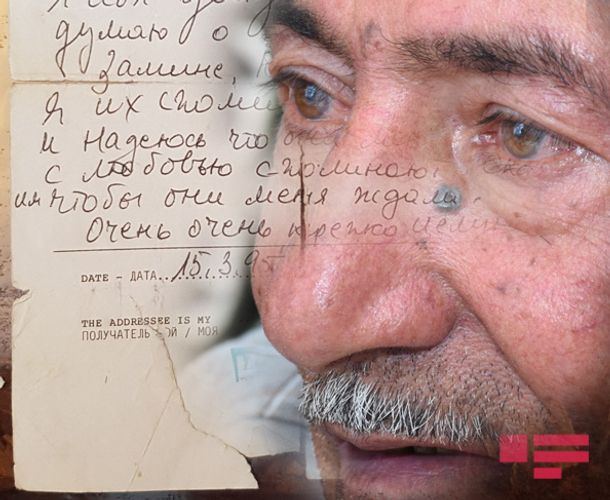 думаю о
Замине,
я их
и надеюсь что
с любовью споминают
им чтобы они меня ждали.
Очень очень крепко
DATE - ДАТА..15.3.95
THE ADDRESSEE IS MY
ПОЛУЧАТЕЛЬ ОЙ / МОЯ